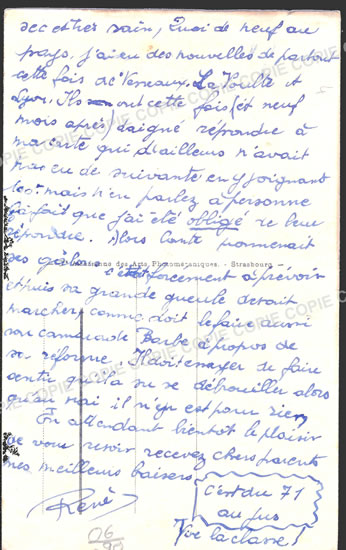 sec et her sain, Quoi de neuf au
pays. j'ai eu des nouvelles de partout
cette fois de Verneaux, La Voulte et
Lyon. Ils ont cette fois (et neuf
mois après) daigné répondre à
ma carte qui d'ailleurs n'avait
pas eu de suivante en y joignant
mais n'en parlez à personne
fait que j'ai été obligé de leur
répondre. Alors Conte promenait
ses
des Arts Photomécaniques. - Strasbourg
c'était forcément à prévoir
et puis sa grande gueule devait
marcher comme doit le faire aussi
son camarade Barbe à propos de
sa réforme. Il doit essayer de faire
sentir qu'il a su se débrouiller alors
qu'au vrai il n'y est pour rien
En attendant bientôt le plaisir
de vous revoir recevez chers parents
mes meilleurs baisers
René
c'est du 71
au jus
Vive la classe!
COPIE COPIE COPIE COPIE